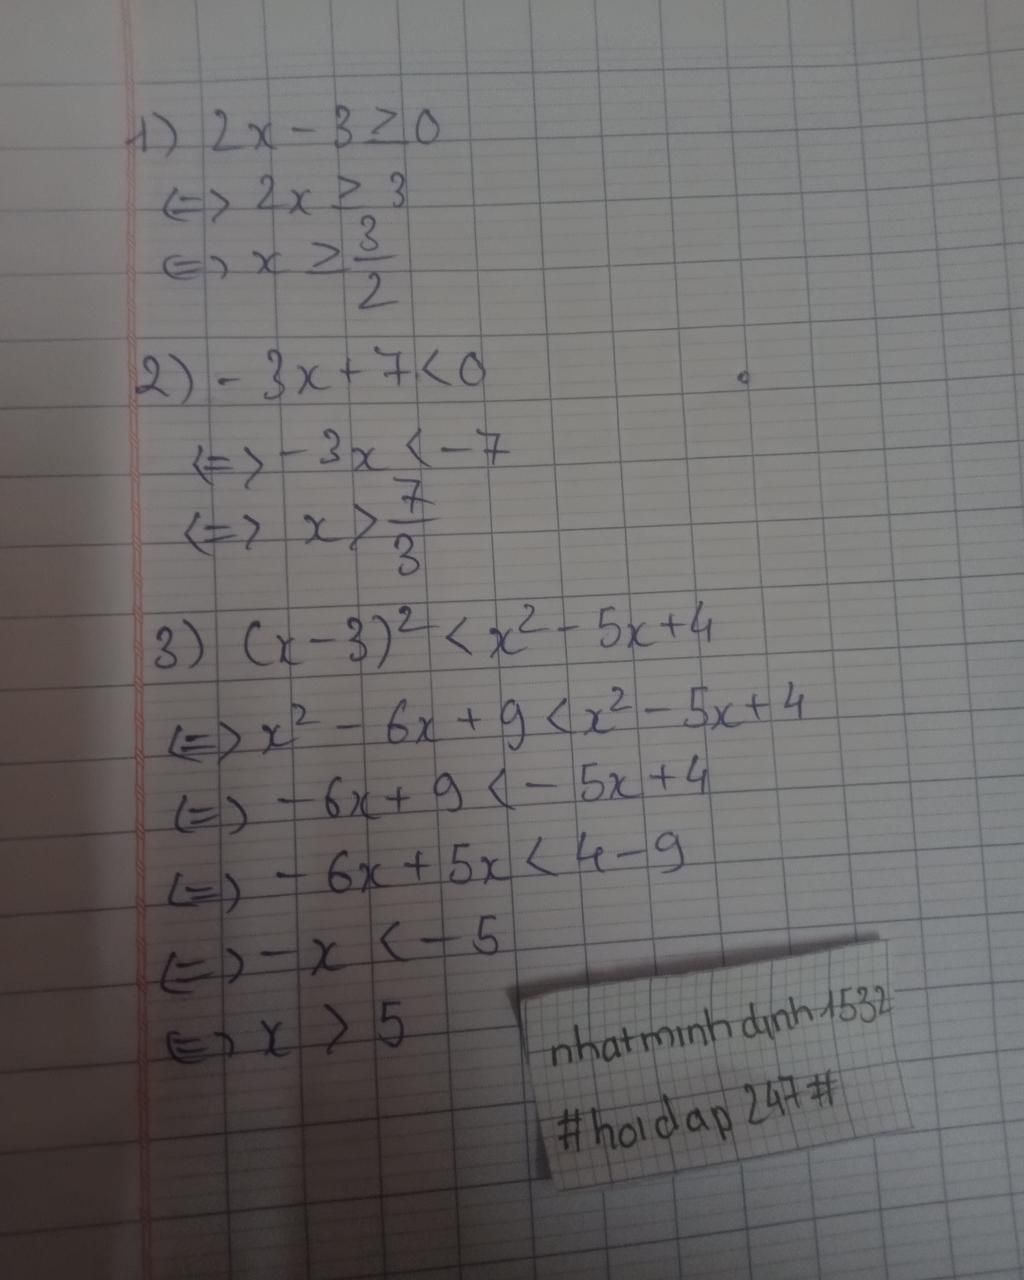 1) 2x - 3 ≥ 0
<=> 2x ≥ 3
<=> x ≥ 3/2
2) - 3x + 7 < 0
<=> - 3x < - 7
<=> x > 7/3
3) (x - 3)² < x² - 5x + 4
<=> x² - 6x + 9 < x² - 5x + 4
<=> - 6x + 9 < - 5x + 4
<=> - 6x + 5x < 4 - 9
<=> - x < - 5
<=> x > 5
nhatminhdinh1532
#hoidap247#